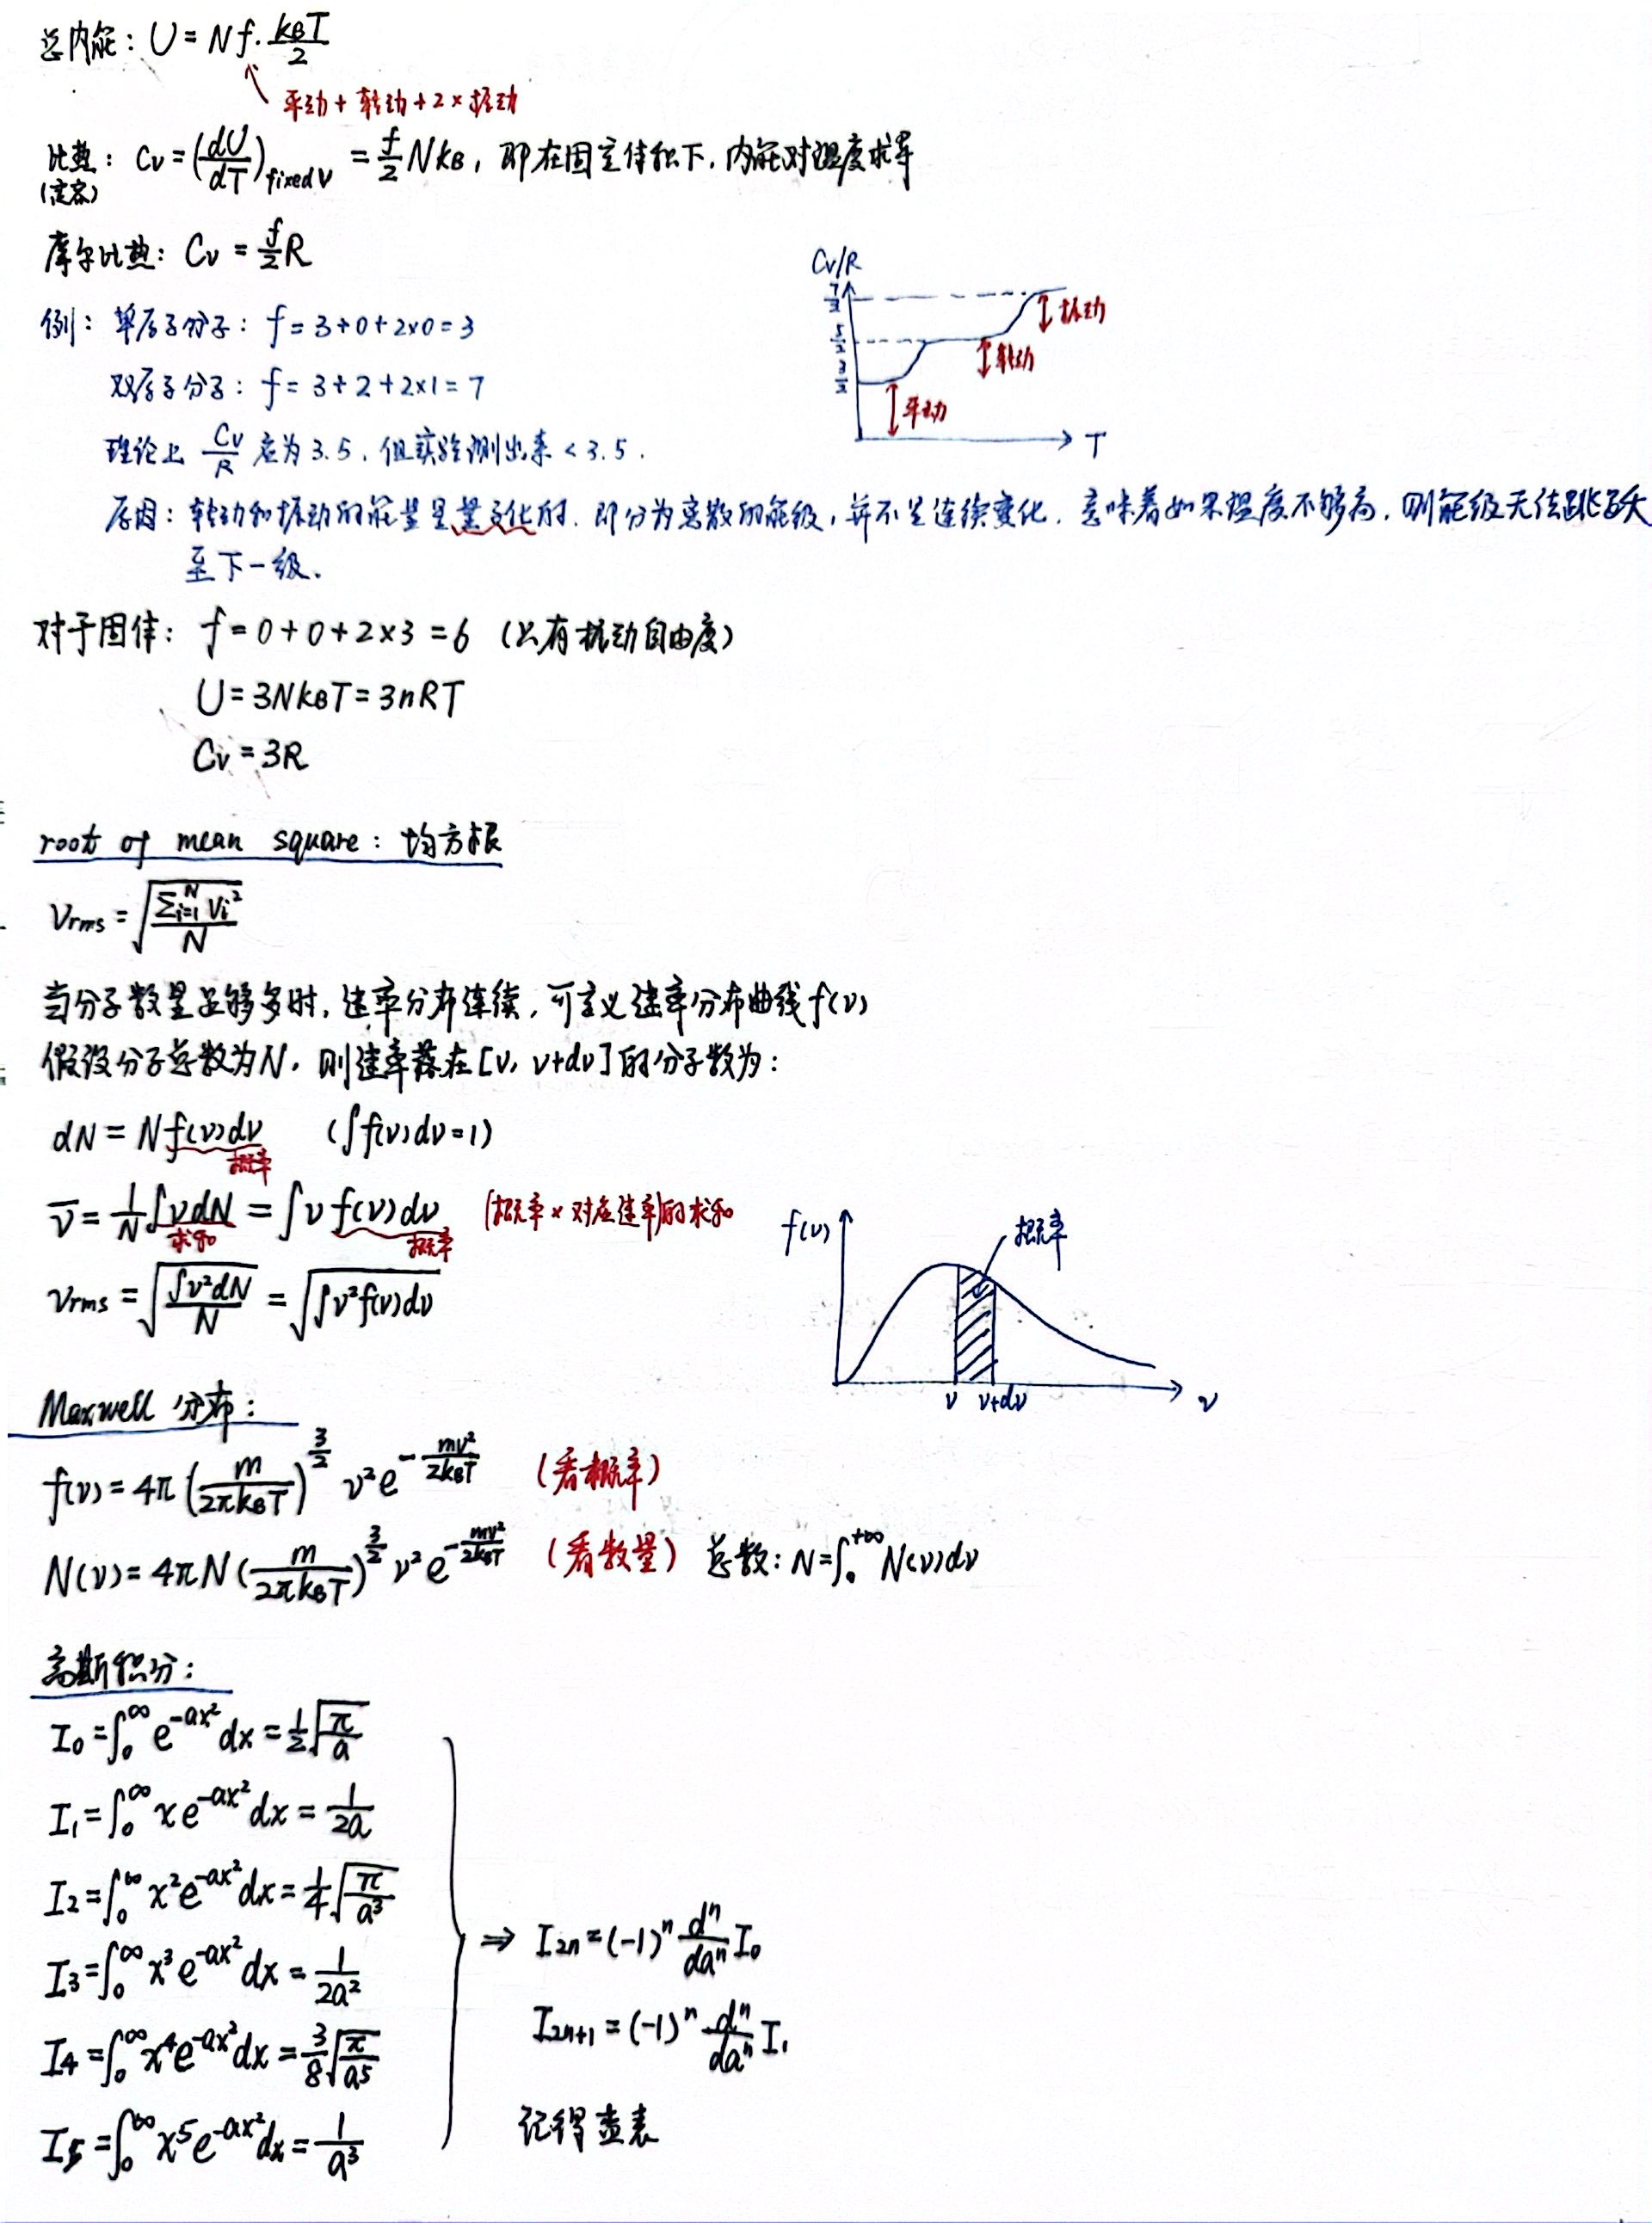 总内能：U = N f · k_BT/2
平动 + 转动 + 2 × 振动
比热：Cv = (dU/dT)fixed V = f/2 N k_B，即在固定体积下，内能对温度求导
(定容)
摩尔比热：Cv = f/2 R
例：单原子分子：f = 3 + 0 + 2×0 = 3
双原子分子：f = 3 + 2 + 2×1 = 7
理论上 Cv/R 应为 3.5，但实验测出来 < 3.5.
Cv/R
7/2
5/2
3/2
振动
转动
平动
T
原因：转动和振动的能量是量子化的，即分为离散的能级，并不是连续变化，意味着如果温度不够高，则能级无法跳跃
至下一级.
对于固体：f = 0 + 0 + 2×3 = 6 （只有振动自由度）
U = 3Nk_BT = 3nRT
Cv = 3R
root of mean square：均方根
Vrms = √(Σ_{i=1}^{N} Vi² / N)
当分子数量足够多时，速率分布连续，可定义速率分布曲线 f(v)
假设分子总数为N，则速率落在[v, v+dv]的分子数为：
dN = N f(v)dv （∫f(v)dv=1）
概率
v̄ = 1/N ∫v dN = ∫v f(v)dv （概率 × 对应速率）的求和
求和 概率
vrms = √(∫v²dN / N) = √(∫v²f(v)dv)
f(v)
概率
v v+dv v
Maxwell 分布：
f(v) = 4π (m/2πk_BT)^{3/2} v² e^{-mv²/2k_BT} （看概率）
N(v) = 4πN (m/2πk_BT)^{3/2} v² e^{-mv²/2k_BT} （看数量） 总数：N = ∫_0^{+∞} N(v)dv
高斯积分：
I₀ = ∫_0^∞ e^{-ax²} dx = 1/2 √(π/a)
I₁ = ∫_0^∞ x e^{-ax²} dx = 1/2a
I₂ = ∫_0^∞ x² e^{-ax²} dx = 1/4 √(π/a³)
I₃ = ∫_0^∞ x³ e^{-ax²} dx = 1/2a²
I₄ = ∫_0^∞ x⁴ e^{-ax²} dx = 3/8 √(π/a⁵)
I₅ = ∫_0^∞ x⁵ e^{-ax²} dx = 1/a³
⇒ I_{2n} = (-1)^n dⁿ/daⁿ I₀
I_{2n+1} = (-1)^n dⁿ/daⁿ I₁
记得查表